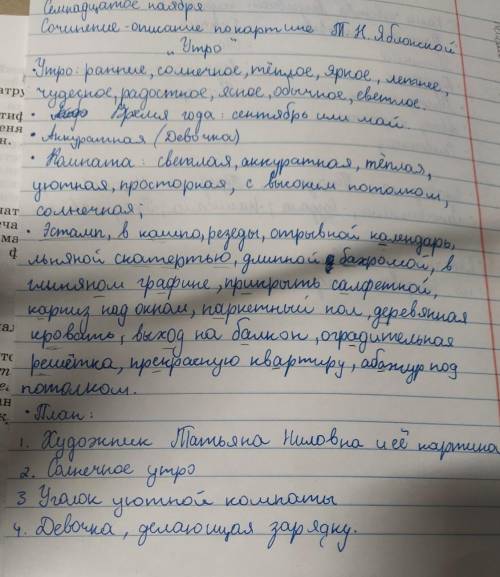 Семнадцатое ноября
Сочинение-описание по картине Т. Н. Яблонской
„Утро"
Утро: раннее, солнечное, тёплое, яркое, летнее,
чудесное, радостное, ясное, обычное, светлое.
• Время года: сентябрь или май.
• Аккуратная (Девочка)
• Комната: светлая, аккуратная, тёплая,
уютная, просторная, с высоким потолком,
солнечная;
• Эстамп, в кашпо, резеды, отрывной календарь,
льняной скатертью, длинной бахромой, в
глиняном графине, прикрыть салфеткой,
карниз над окном, паркетный пол, деревянная
кровать, выход на балкон, оградительная
решётка, прекрасную квартиру, абажур под
потолком.
• План:
1. Художник Татьяна Ниловна и её картина
2. Солнечное утро
3 Уголок уютной комнаты
4. Девочка, делающая зарядку.